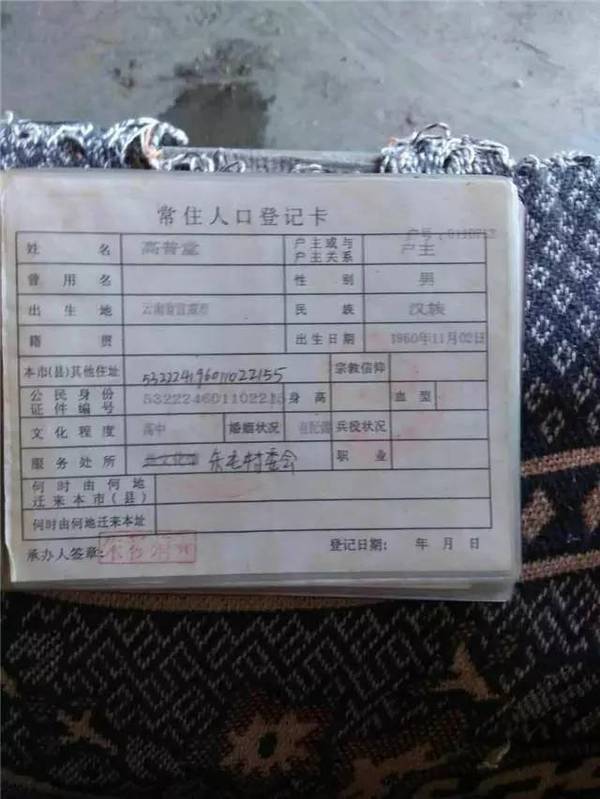 常住人口登记卡
户号:
姓名 高普堂 户主或与户主关系 户主
曾用名 性别 男
出生地 云南省宣威市 民族 汉族
籍贯 出生日期 1960年11月02日
本市(县)其他住址 532224196011022155 宗教信仰
公民身份证件编号 532224601102215 身高 血型
文化程度 高中 婚姻状况 有配偶 兵役状况
服务处所 村委会 职业
何时由何地迁来本市(县)
何时由何地迁来本址
承办人签章: 登记日期: 年 月 日